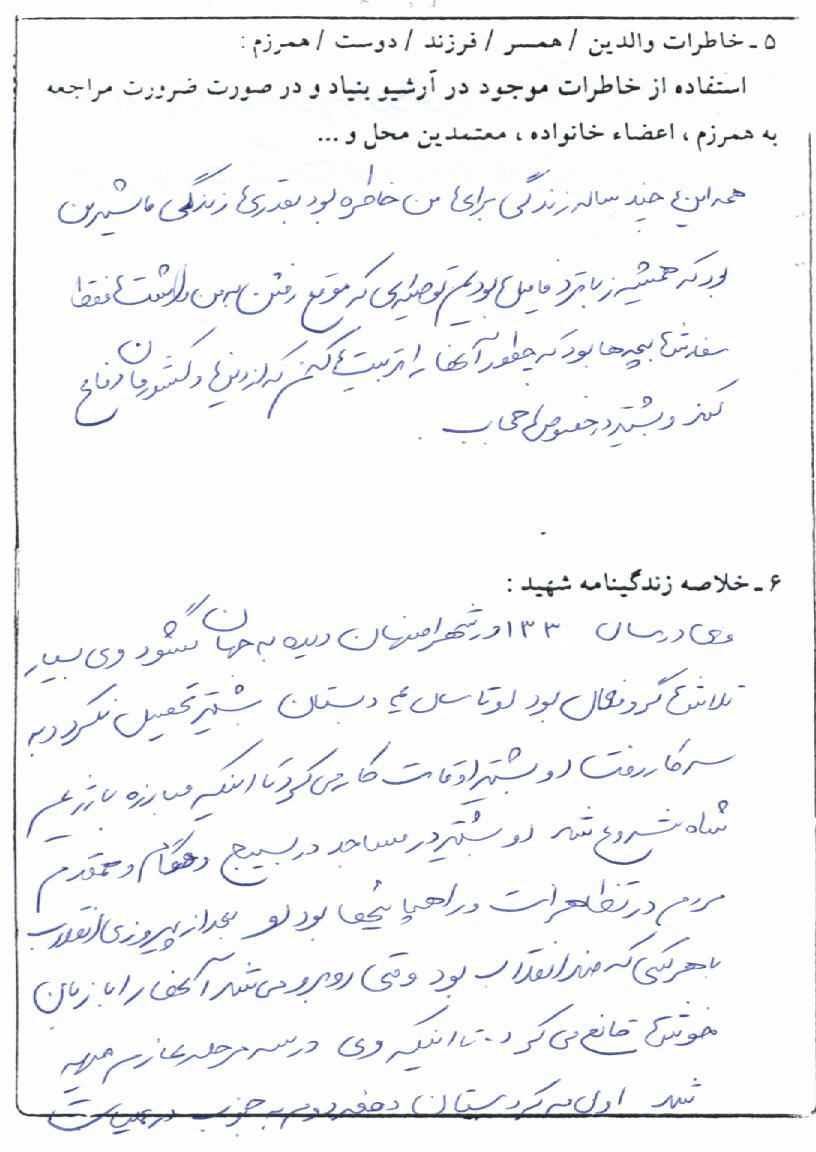 ۵ ـ خاطرات والدین / همسر / فرزند / دوست / همرزم :
استفاده از خاطرات موجود در آرشیو بنیاد و در صورت ضرورت مراجعه
به همرزم ، اعضاء خانواده ، معتمدین محل و ...
همه این چند ساله زندگی برای من خاطره بود بقدری زندگی ما شیرین
بود که همیشه زبانزد فامیل بودیم توصیه‌ای که موقع رفتن به من داشت فقط
سفارش بچه‌ها بود که چطور آنها را تربیت کنم که از دین و کشورمان دفاع
کنند و بیشتر در خصوص حجاب .
۶ ـ خلاصه زندگینامه شهید :
وی در سال ۱۳۳۰ در شهر اصفهان دیده به جهان گشود وی بسیار
تلاش‌گر و فعال بود او تا سال دبستان بیشتر تحصیل نکرد و به
سر کار رفت او بیشتر اوقات کار می‌کرد تا اینکه مبارزه با رژیم
شاه شروع شد او بیشتر در مساجد در بسیج و همگام و همقدم
مردم در تظاهرات و راهپیمائیها بود او بعد از پیروزی انقلاب
با هر کسی که ضد انقلاب بود وقتی روبرو می‌شد آنها را با زبان
خوش قانع می‌کرد . تا اینکه وی در سه مرحله عازم جبهه
شد اول به کردستان دفعه دوم به جنوب در عملیات